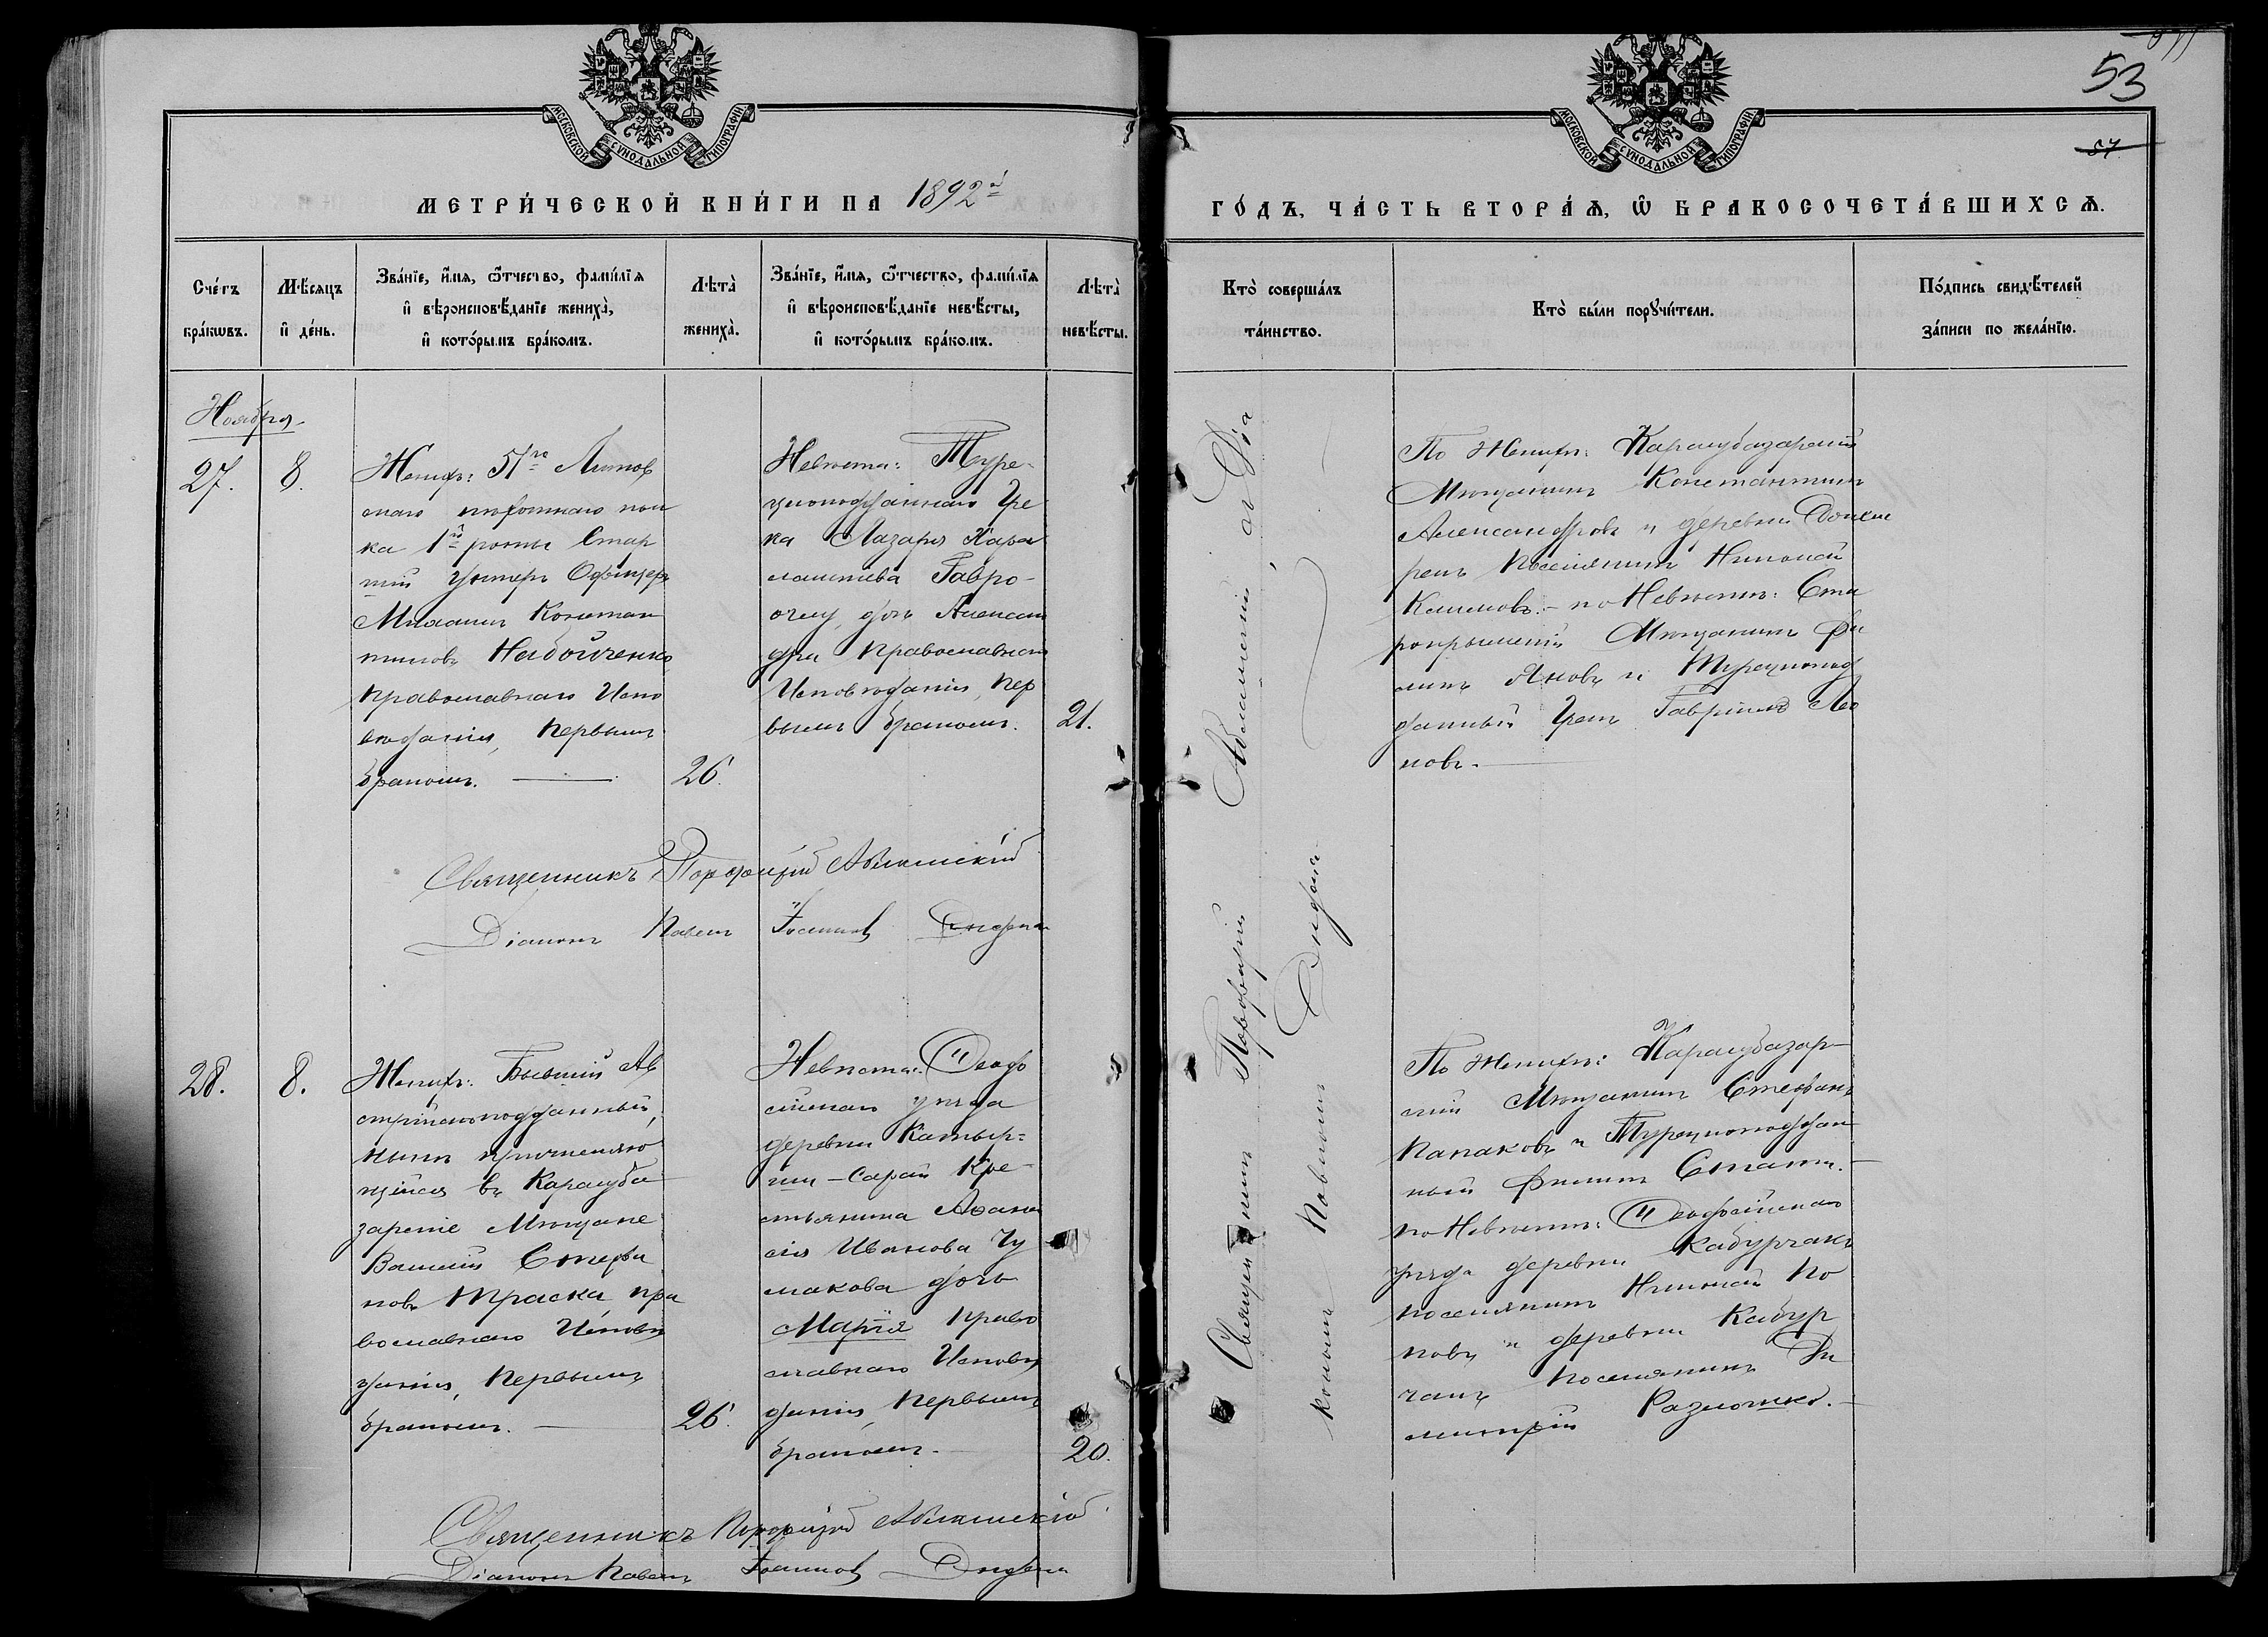 53
57
МОСКОВСКОЙ СѴНОДАЛЬНОЙ ТИПОГРАФІИ
МОСКОВСКОЙ СѴНОДАЛЬНОЙ ТИПОГРАФІИ
МЕТРИ́ЧЕСКОЙ КНИ́ГИ НА 1892й
ГО́ДЪ, ЧА́СТЬ ВТОРА́Ѧ, Ѽ БРАКОСОЧЕТА́ВШИХСѦ.
Сче́тъ бра́кωвъ.
Мѣ́сяцъ и҆ де́нь.
Зва́нїе, и҆́мя, ѻ҆́тчество, фами́лїя
и҆ вѣроисповѣ́данїе жениха̀,
и҆ кото́рымъ бра́комъ.
Лѣта̀ жениха̀.
Зва́нїе, и҆́мя, ѻ҆́тчество, фами́лїя
и҆ вѣроисповѣ́данїе невѣ́сты,
и҆ кото́рымъ бра́комъ.
Лѣта̀ невѣ́сты.
Кто̀ соверша́лъ
та́инство.
Кто̀ бы́ли порꙋчи́тели.
По́дпись свидѣ́телей
за́писи по жела́нїю.
Ноября
27.
8.
Женихъ: 51го Литов
скаго пѣхотнаго пол
ка 1й роты Стар
шій Унтеръ Офицеръ
Михаилъ Констан
тиновъ Набойченко
Православнаго Испо
вѣданія, Первымъ
бракомъ.
26.
Невѣста: Туре-
цкоподданнаго Гре
ка Лазаря Хара
лампіева Гавро-
очлу дочь Алексан
дра Православнаго
Исповѣданія, Пер
вымъ бракомъ.
21.
Священникъ Порфирій Абламскій
Діаконъ Павелъ Іоанновъ
По Женихѣ: Карасубазарскій
Мѣщанинъ Константинъ
Александровъ и деревни
Поселянинъ Николай
по Невѣстѣ: Ста
рокрымскій Мѣщанинъ Фи
липъ Яновъ и Турецкопод
данный Грекъ Гавріилъ Ло
новъ.
28.
8.
Женихъ: Бывшій Ав
стрійскоподданный,
нынѣ причисляю
щійся въ Карасуба
зарскіе Мѣщане
Василій Стефа
новъ Траска пра
вославнаго Исповѣ
данія, Первымъ
бракомъ.
26.
Невѣста: Ѳеодо
сійскаго уѣзда
деревни Катыр-
ши-Сарай Кре-
стьянина Аѳана
сія Иванова Чу
макова дочь
Марія Право
славнаго Исповѣ
данія, Первымъ
бракомъ.
20.
Священникъ Порфирій Абламскій
Діаконъ Павелъ Іоанновъ
По Женихѣ: Карасубазар-
скій Мѣщанинъ Стефанъ
Папаковъ и Турецкоподдан
ный Филипъ Стати.
по Невѣстѣ: Ѳеодосійскаго
уѣзда деревни Кабурчакъ
поселянинъ Николай По
повъ и деревни Кабур
чакъ Поселянинъ Ди
митрій
Священникъ Порфирій Абламскій, съ Діа
кономъ Павломъ